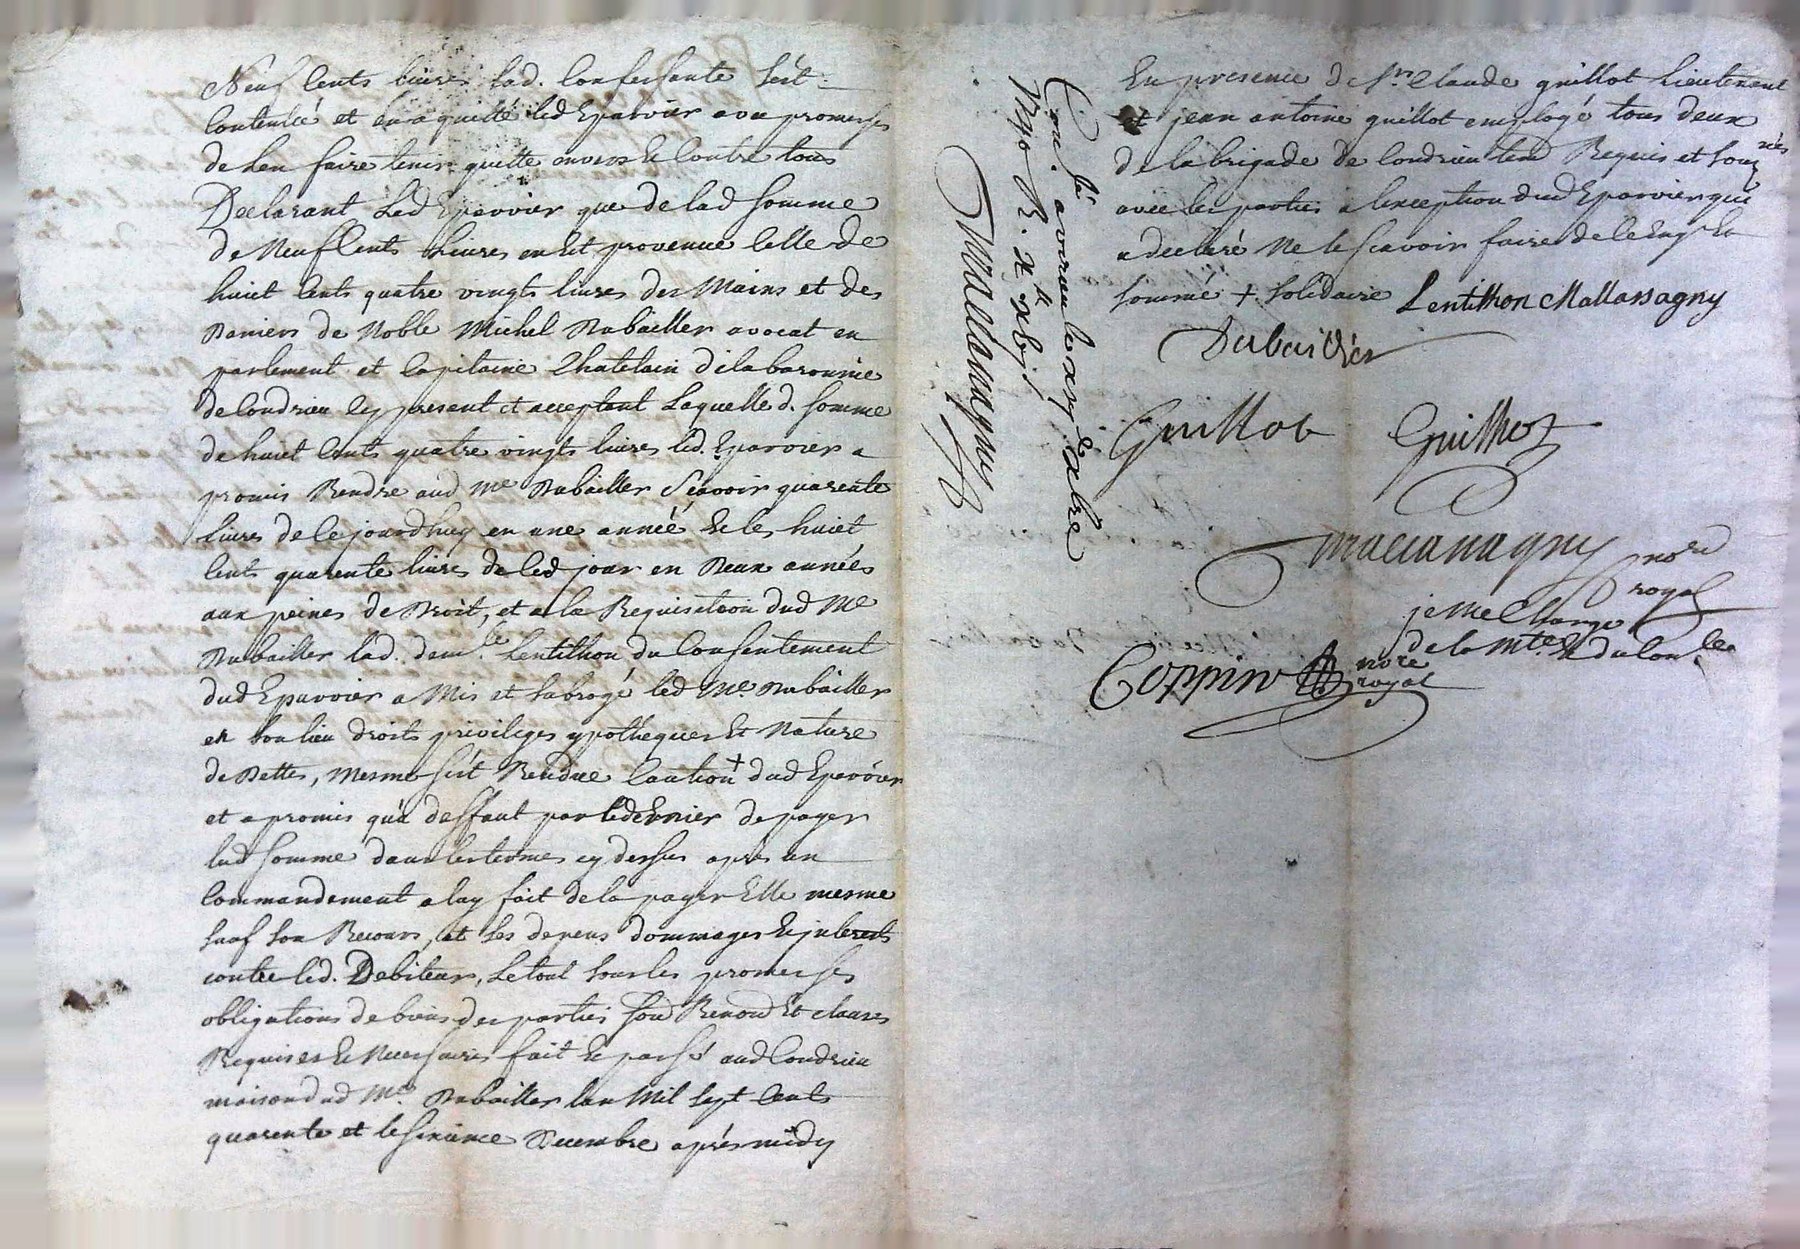 Neuf Cents livres lad. Confessante s'est
Contentée et en a quitté led Eparvier avec promesses
de l'en faire tenir quitte envers et Contre tous
Declarant Led Eparvier que de lad somme
de Neuf Cents Livres en Est provenue Celle de
huict Cents quatre vingts livres des Mains et des
Deniers de Noble Michel Dubaillier avocat en
parlement et Capitaine Chatelain de la baronnie
de Condrieu icy present et acceptant Laquelle d. somme
de huict Cents quatre vingts livres led. Eparvier a
promis Rendre aud Me Dubailler Scavoir quarente
livres de ce jourdhuy en une année Et les huict
Cents quarente livres de Ced jour en Deux années
aux peines de Droit, et a la Requisition dud Me
Dubailler lad. demlle Lentillhon du Consentement
dud Eparvier a Mis et subrogé led Me Dubailler
en son lieu droits privileges ypothèques Et Nature
de Dettes, mesme s'est Rendue Caution + dud Eparvier
et a promis qu'a deffaut par le dernier de payer
lad somme dans les termes cy dessus apres un
Commandement a luy fait de la payer Elle mesme
sauf son Recours, et ses depens dommages Et interests
contre led. Debiteur, Le tout sous les promesses
obligations de biens des parties sous Renon Et clauses
Requises Et Necessaires fait Et passé aud Condrieu
maison dud Me Dubailler lan Mil Sept Cents
quarente et le Decembre après midy
Con.
1740 R.
Mallanagny
En presence de Sr Claude guillot Lieutenant
et jean antoine guillot employé tous deux
de la brigade de Condrieu tem Requis et souznés
avec les parties a l'exception dud Eparvier qui
a declaré Ne le scavoir faire de ce Enqs Et
sommé + solidaire Lentillhon Mallassagny
Dubaillier
Guillot Guillhot
Mallanagny nore
royal
je me Charge
de la mte Et du Conlle
Coppin nore
royal